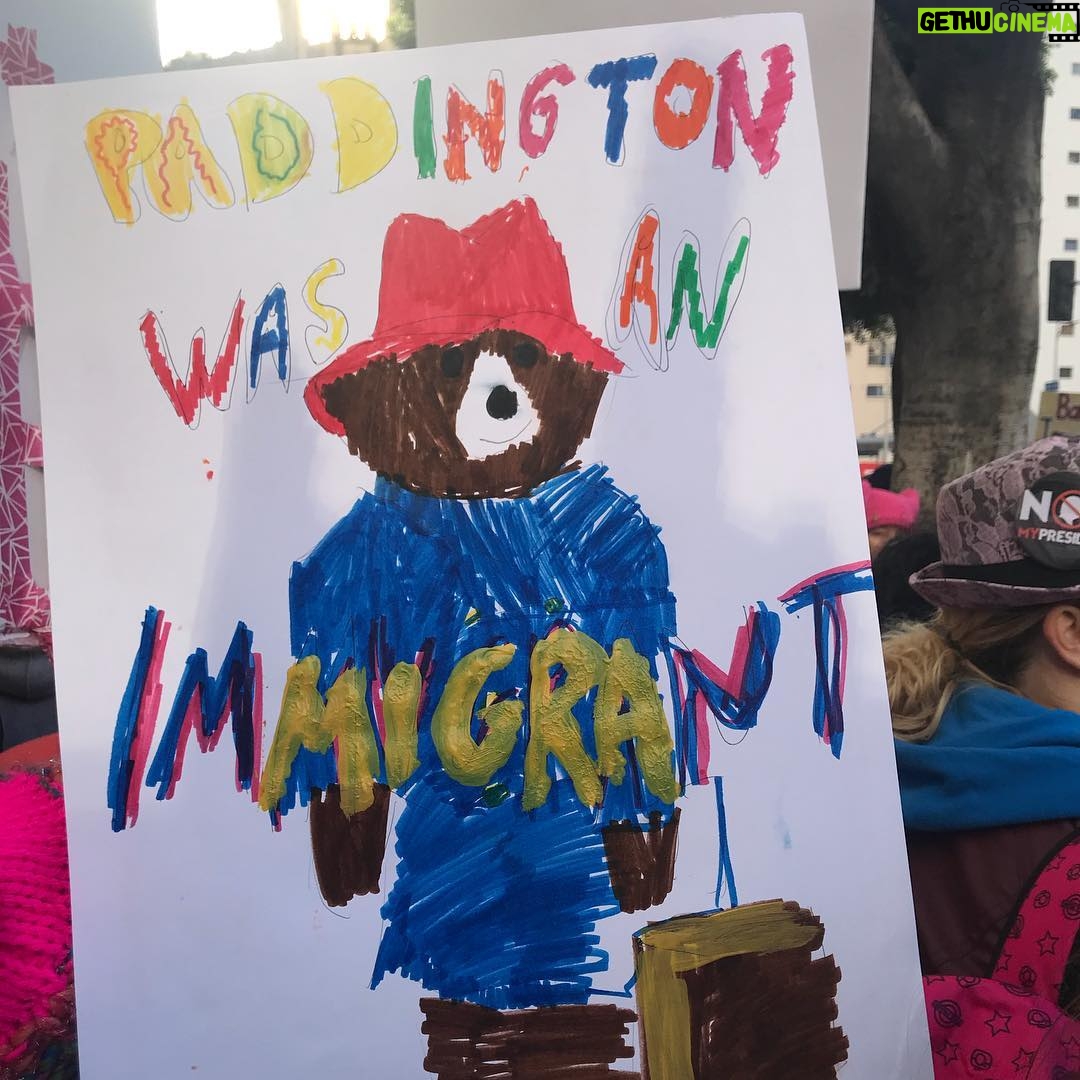 GETHUCINEMA
PADDINGTON
WAS AN
IMMIGRANT
NO
MYPRESID
Ba